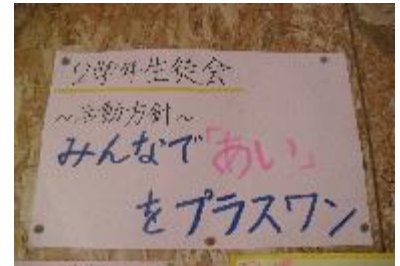 少学年生徒会
～活動方針～
みんなで「あい」
をプラスワン